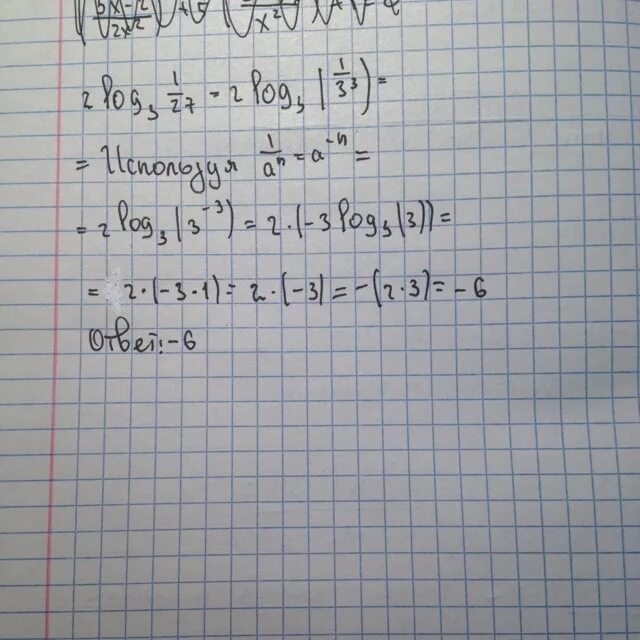 2 log₃ 1/27 = 2 log₃ (1/3³) =
= Используя 1/aⁿ = a⁻ⁿ =
= 2 log₃ (3⁻³) = 2·(-3 log₃ (3)) =
= 2·(-3·1) = 2·(-3) = -(2·3) = -6
Ответ: -6